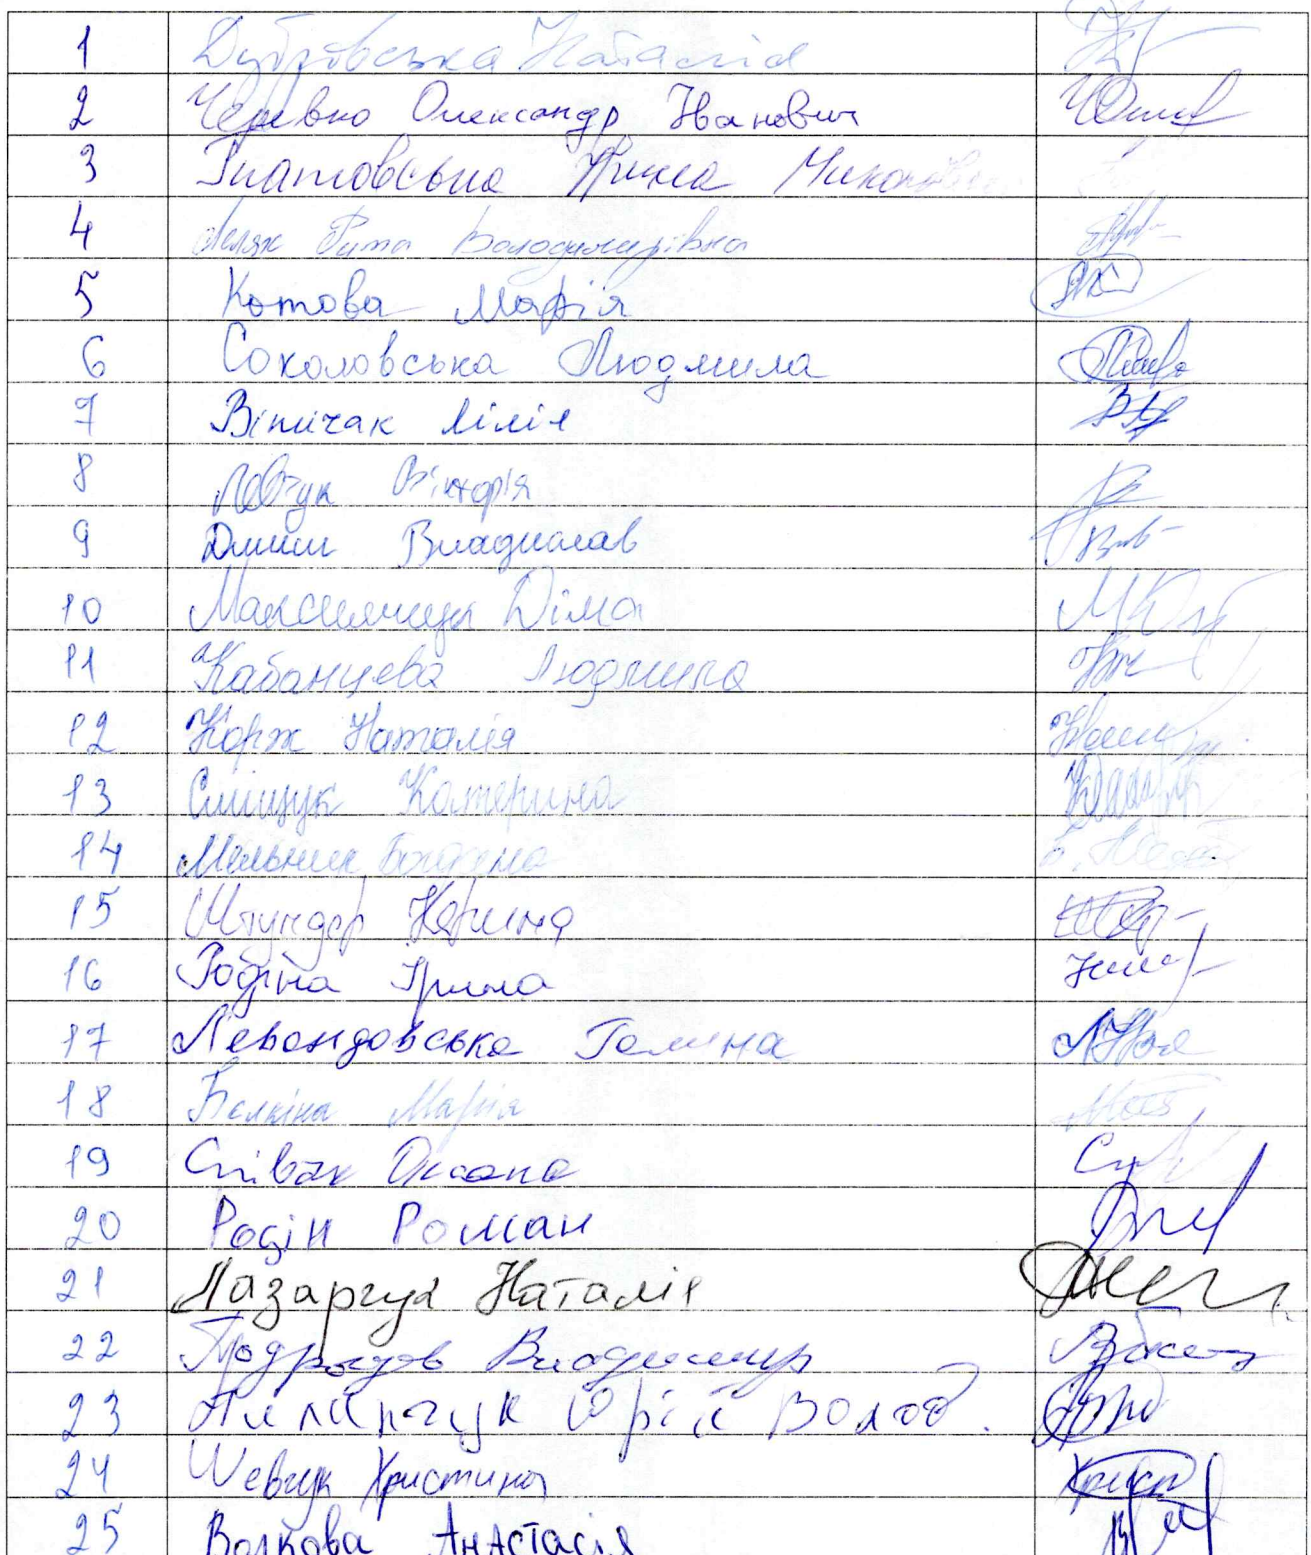 1 Дубровська Наталія
2 Черевко Олександр Іванович
3 Ігнатовська Ірина
4 Рита Володимирівна
5 Котова Марія
6 Соколовська Людмила
7 Віпичак Лілія
8 Левчук Вікторія
9 Владислав
10 Максимчук Діма
11 Кабанцева Людмила
12 Корж Наталія
13 Сміщук Катерина
14 Мельник Богдана
15 Штундер Карина
16 Родіна Ірина
17 Левандовська Галина
18 Бєлкіна Марія
19 Співак Оксана
20 Родін Роман
21 Лазарчук Наталія
22 Владимир
23 Юрій Волод.
24 Шевчук Христина
25 Волкова Анастасія